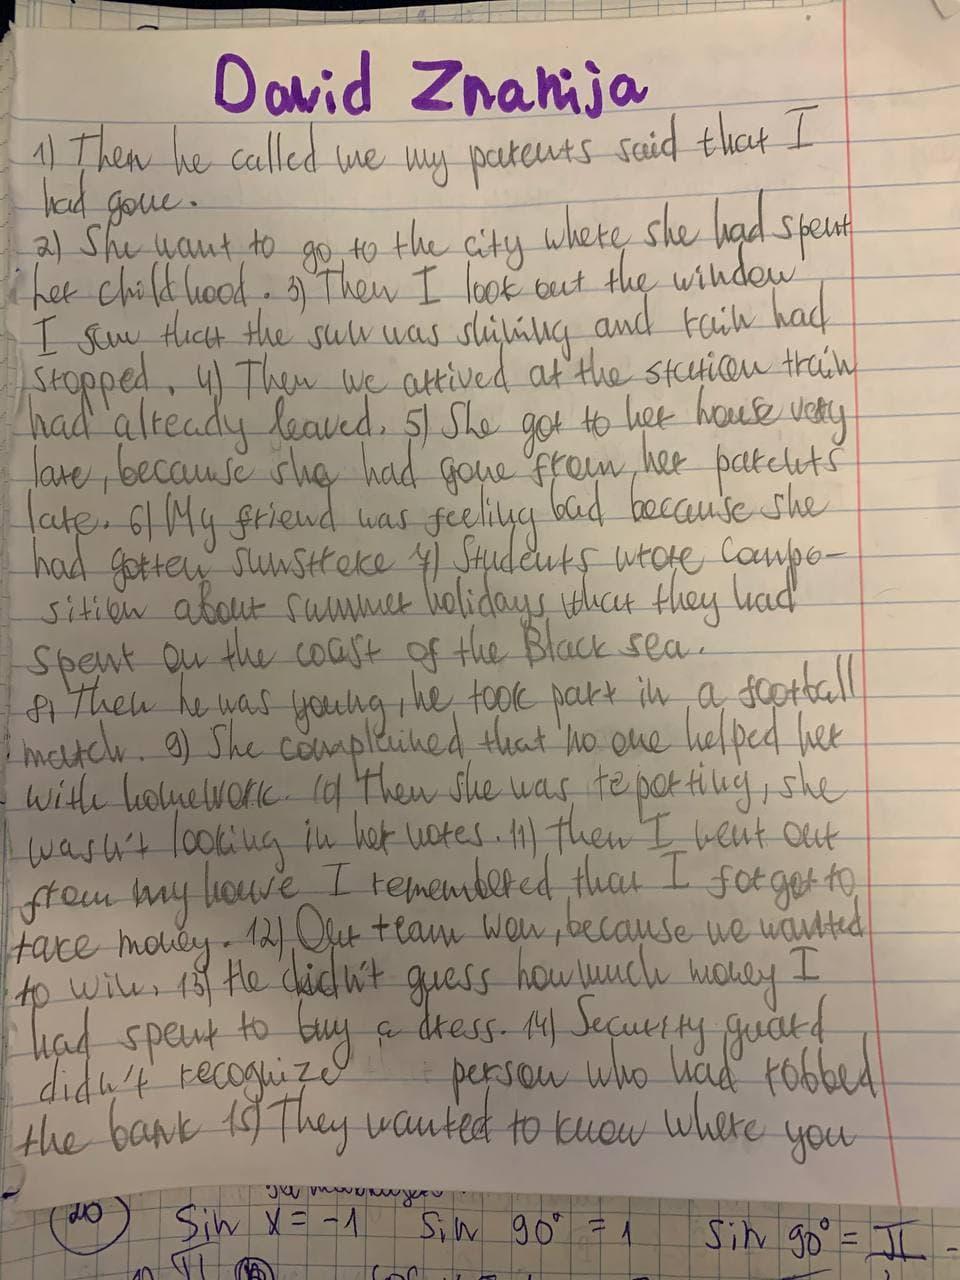 David Znanija
1) Then he called me my parents said that I
had gone.
2) She want to go to the city where she had spent
her childhood. 3) Then I look out the window
I saw that the sun was shining and rain had
stopped. 4) Then we arrived at the station train
had already leaved. 5) She got to her house very
late, because she had gone from her parents
late. 6) My friend was feeling bad because she
had gotten sunstroke 7) Students wrote compo-
sition about summer holidays that they had
spent on the coast of the Black sea.
8) Then he was young, he took part in a football
match. 9) She complained that no one helped her
with homework. 10) Then she was reporting, she
wasn't looking in her notes. 11) Then I went out
from my house I remembered that I forgot to
take money. 12) Our team won, because we wanted
to win. 13) He didn't guess how much money I
had spent to buy a dress. 14) Security guard
didn't recognize person who had robbed
the bank 15) They wanted to know where you
20 Sin x = -1 Sin 90° = 1 Sin 90° = II -